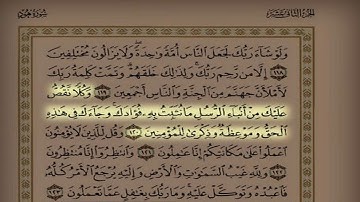 الجزء الثاني عشر سورة هود
وَلَوْ شَاءَ رَبُّكَ لَجَعَلَ النَّاسَ أُمَّةً وَاحِدَةً ۖ وَلَا يَزَالُونَ مُخْتَلِفِينَ
﴿١١٨﴾ إِلَّا مَن رَّحِمَ رَبُّكَ ۚ وَلِذَٰلِكَ خَلَقَهُمْ ۗ وَتَمَّتْ كَلِمَةُ رَبِّكَ
لَأَمْلَأَنَّ جَهَنَّمَ مِنَ الْجِنَّةِ وَالنَّاسِ أَجْمَعِينَ ﴿١١٩﴾ وَكُلًّا نَّقُصُّ
عَلَيْكَ مِنْ أَنبَاءِ الرُّسُلِ مَا نُثَبِّتُ بِهِ فُؤَادَكَ ۚ وَجَاءَكَ فِي هَٰذِهِ
الْحَقُّ وَمَوْعِظَةٌ وَذِكْرَىٰ لِلْمُؤْمِنِينَ ﴿١٢٠﴾ وَقُل لِّلَّذِينَ لَا يُؤْمِنُونَ
اعْمَلُوا عَلَىٰ مَكَانَتِكُمْ إِنَّا عَامِلُونَ ﴿١٢١﴾ وَانتَظِرُوا إِنَّا مُنتَظِرُونَ
﴿١٢٢﴾ وَلِلَّهِ غَيْبُ السَّمَاوَاتِ وَالْأَرْضِ وَإِلَيْهِ يُرْجَعُ الْأَمْرُ كُلُّهُ
فَاعْبُدْهُ وَتَوَكَّلْ عَلَيْهِ ۚ وَمَا رَبُّكَ بِغَافِلٍ عَمَّا تَعْمَلُونَ ﴿١٢٣﴾